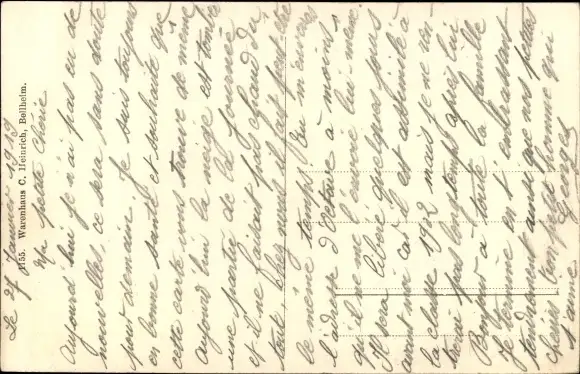 Le 27 Janvier 1919
Ma petite chérie
Aujourd'hui je n'ai pas eu de
nouvelles ce sera sans doute
pour demain. Je suis toujours
en bonne santé et souhaite que
cette carte vous trouve de même
aujourd'hui la neige est tombée
une partie de la journée
et il ne faisait pas chaud du
tout chez nous il fait peut être
le même temps. Tu m'enverras
l'adresse d'Octave à moins
qu'il ne me l'envoie lui même.
Il sera libéré quelques jours
avant moi car il est assimilé à
la classe 1912 mais je ne
serai pas longtemps après lui
Bonjour à toute la famille
Je termine en t'embrassant
tendrement ainsi que nos petites
chéries ton petit homme qui
t'aime Georges
1155. Warenhaus C. Heinrich, Bellheim.